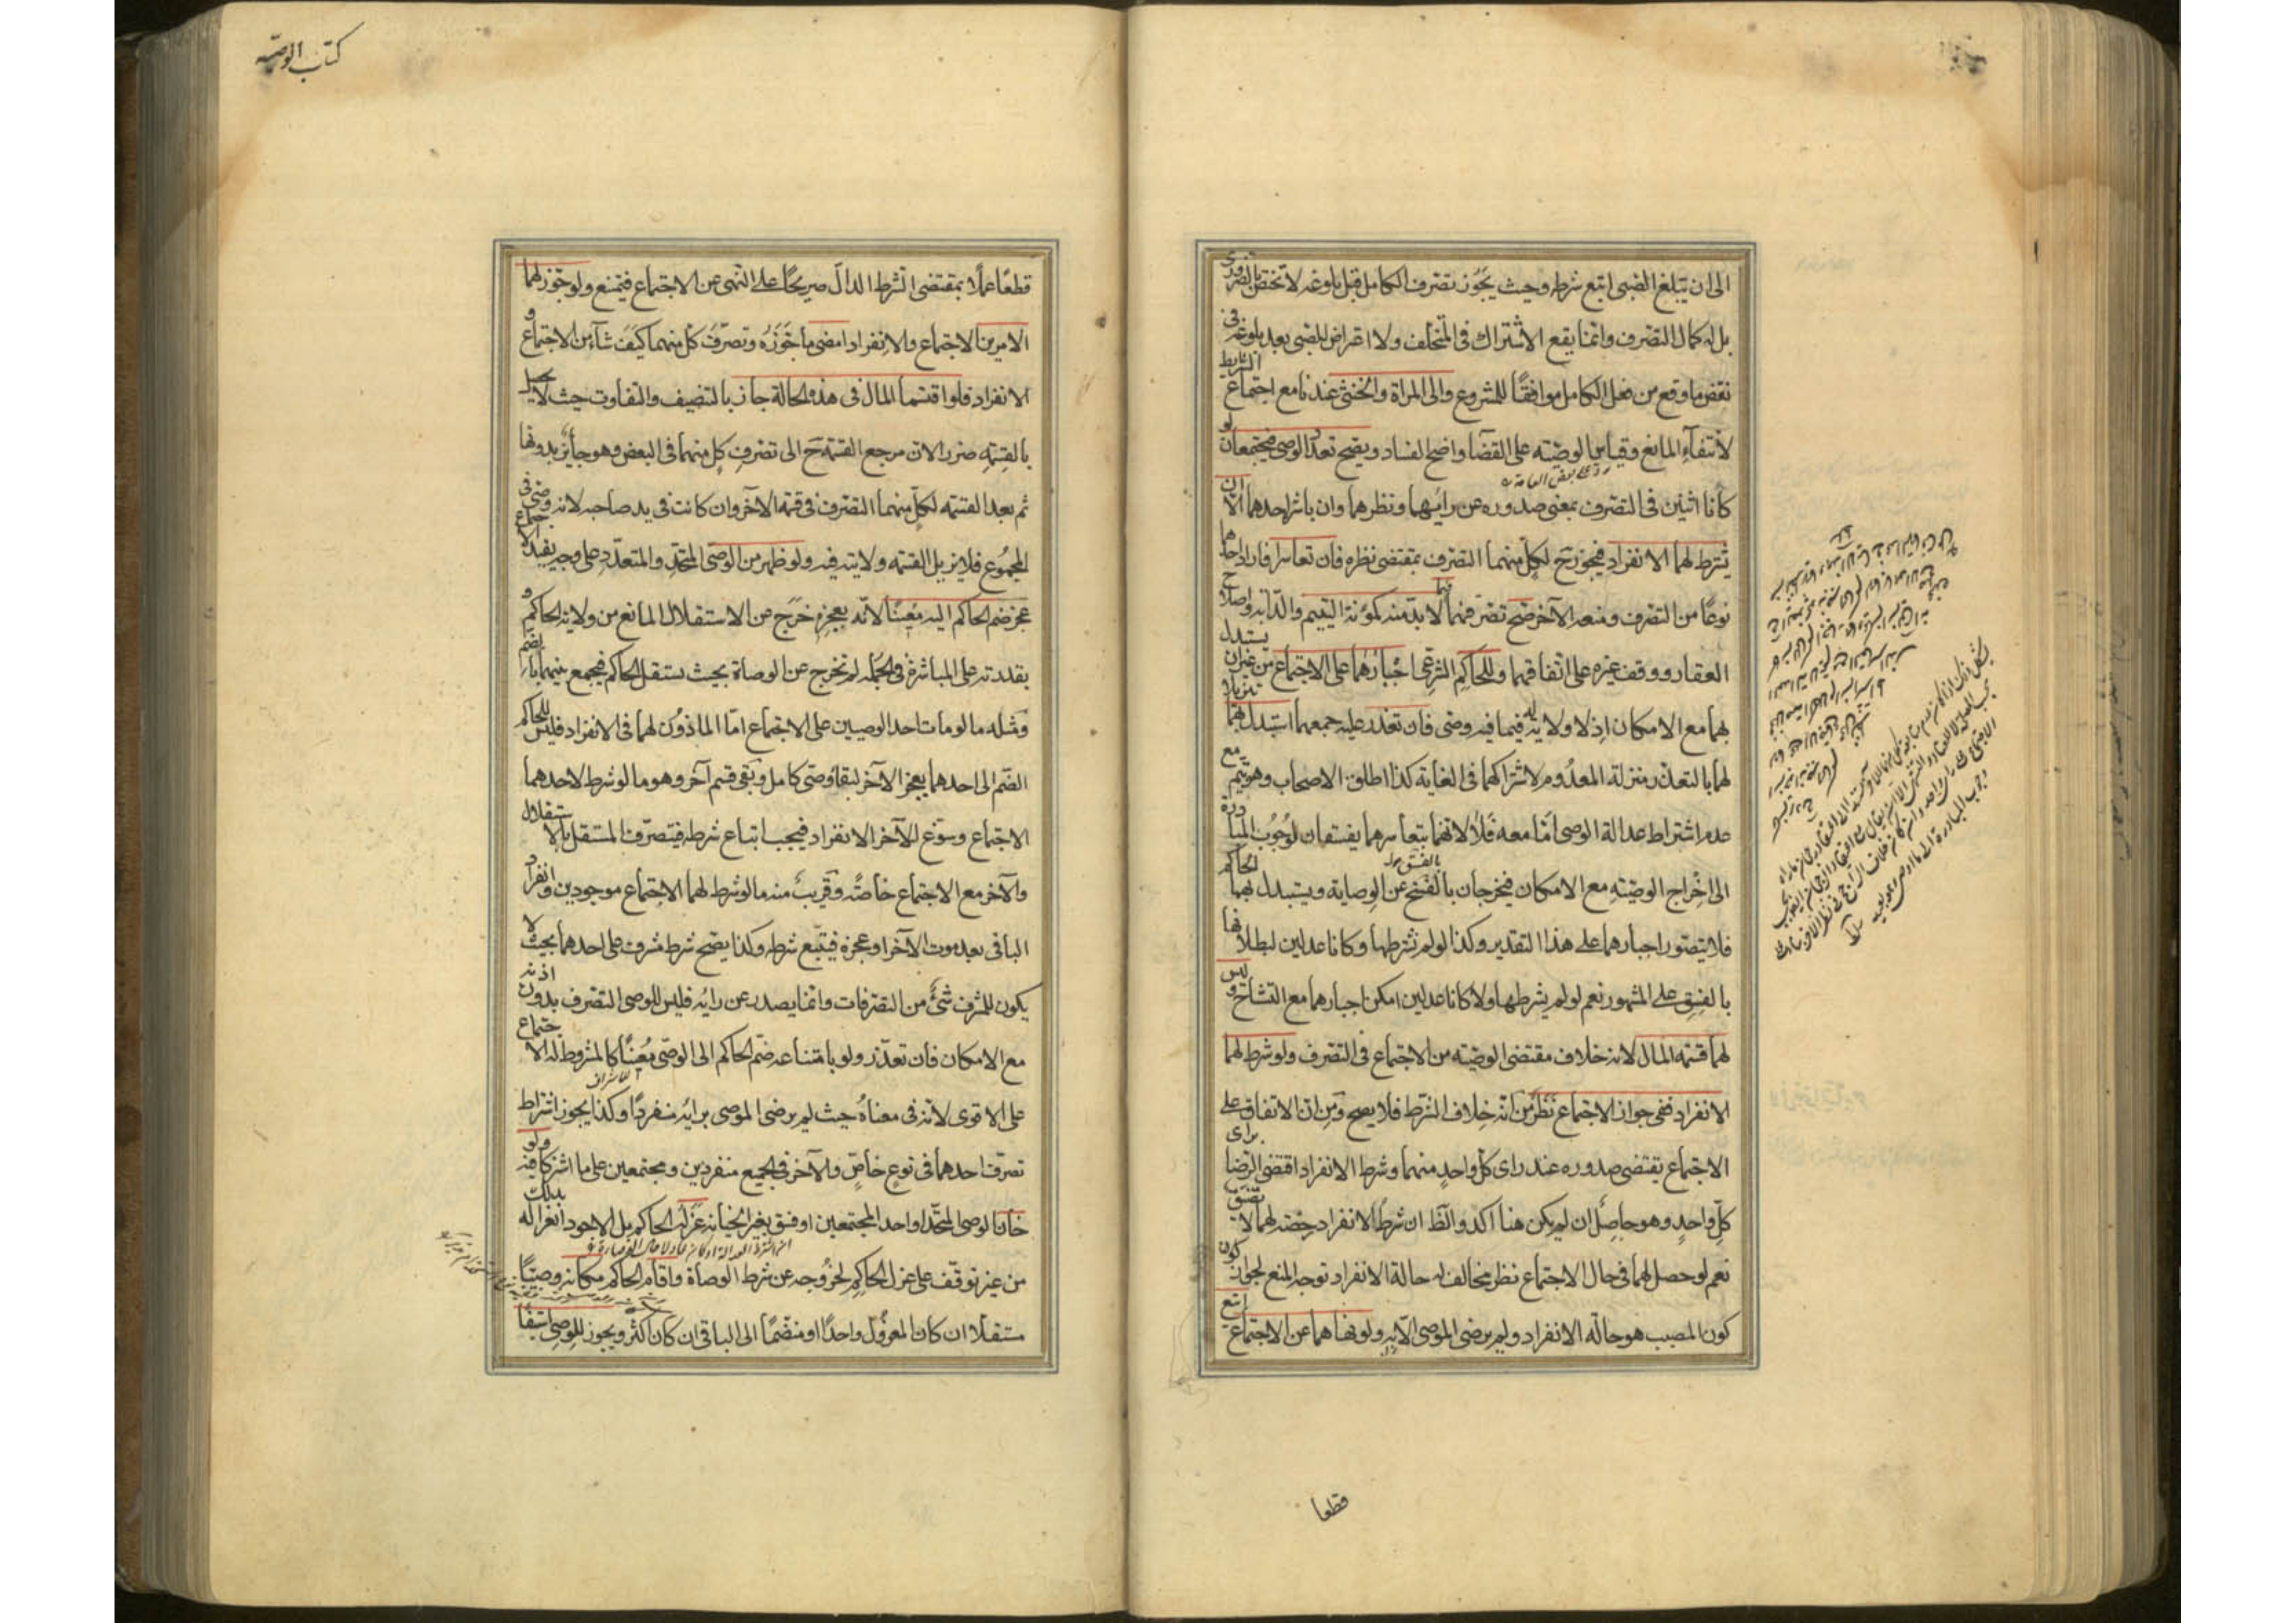 الى ان يبلغ الصبى اتبع شرطه وحيث يجوز تصرف الكامل قبل بلوغه لا تختص بالضرورى
بل له كمال التصرف وانما يقع الاشتراك فى المتخلف ولا اعتراض للصبى بعد بلوغه فى
نقض ما وقع من فعل الكامل موافقًا للمشروع والى المراة والخنثى عندنا مع اجتماع الشرايط
لانتفاء المانع وقياس الوصيّة على القضا واضح الفساد ويصح تعدد الوصى فيجتمعان لو
ردّ على بعض العامة
كانا اثنين فى التصرف بمعنى صدوره عن رايهما ونظرهما وان باشر احدهما الا ان
يشترط لهما الانفراد فيجوز ح لكل منهما التصرف بمقتضى نظره فان تعاسرا فاراد احدهما
نوعًا من التصرف ومنعه الآخر صح تصرفهما فيما لا بد منه كمؤنة اليتيم والدابة واصلاح
العقار ووقف غيره على اتفاقهما وللحاكم الشرعى اجبارهما على الاجتماع من غير ان يستبدل
بهما مع الامكان اذ لا ولاية له فيما فيه وصى فان تعذر عليه جمعهما استبدل بهما تنزيلا
لهما بالتعذر منزلة المعدوم لاشتراكهما فى الغاية كذا اطلق الاصحاب وهو يتم مع
عدم اشتراط عدالة الوصى امّا معه فلا لانهما بتعاسرهما يفسقان لوجوب المبادرة
الى اخراج الوصيّة مع الامكان فيخرجان بالفسق عن الوصاية ويستبدل بهما الحاكم
فلا يتصور اجبارهما على هذا التقدير وكذا لو لم نشترطها وكانا عدلين لبطلانها
بالفسق على المشهور نعم لو لم يشترطها ولا كانا عدلين امكن اجبارهما مع التشاح وليس
لهما قسمة المال لانه خلاف مقتضى الوصيّة من الاجتماع فى التصرف ولو شرط لهما
الانفراد ففى جواز الاجتماع نظر من انه خلاف الشرط فلا يصح ومن ان الاتفاق على
الاجتماع يقتضى صدوره عند راى كل واحد منهما وشرط الانفراد اقتضى الرضا براى
كل واحد وهو حاصل ان لم يكن هنا اكد والظ ان شرط الانفراد رخصة لهما لا تضيق
نعم لو حصل لهما فى حال الاجتماع نظر مخالف له حالة الانفراد توجه المنع لجواز كون
كون المصيب هو حالة الانفراد ولم يرض الموصى الا به ولو نهاهما عن الاجتماع اتبع
قطعا
كتاب الوصيّة
قطعًا عملًا بمقتضى الشرط الدالّ صريحًا على النهى عن الاجتماع فيتبع ولو جوّز لهما
الامرين الاجتماع والانفراد امضى ما جوّزه وتصرّف كل منهما كيف شاء من الاجتماع و
الانفراد فلو اقتسما المال فى هذه الحالة جاز بالتنصيف والتفاوت حيث لا يحصل
بالقسمة ضرر لان مرجع القسمة ح الى تصرف كل منهما فى البعض وهو جايز بدونها
ثم بعد القسمة لكل منهما التصرف فى قسمة الآخر وان كانت فى يد صاحبه لانه وصى فى
المجموع فلا يزيل القسمة ولايته فيه ولو ظهر من الوصى المتحد والمتعدّد على وجه يفيد الاجتماع
عجز ضم الحاكم اليه معينًا لانه بعجزه خرج عن الاستقلال المانع من ولاية الحاكم و
بقدرته على المباشرة فى الجمله لم تخرج عن الوصاة بحيث يستقل الحاكم فيجمع بينهما بالضم
ومثله ما لو مات احد الوصيين على الاجتماع امّا الماذون لهما فى الانفراد فليس للحاكم
الضم الى احدهما بعجز الآخر لبقاء وصى كامل وبقى قسم آخر وهو ما لو شرط لاحدهما
الاجتماع وسوّغ للآخر الانفراد فيجب اتباع شرطه فيتصرّف المستقل بالاستقلال
والآخر مع الاجتماع خاصّة وقريب منه ما لو شرط لهما الاجتماع موجودين وانفراد
الباقى بعد موت الآخر او عجزه فيتبع شرطه وكذا يصح شرط مشرف على احدهما بحيث لا
يكون للمشرف شئ من التصرفات وانما يصدر عن رايه فليس للوصى التصرف بدون اذنه
مع الامكان فان تعذّر ولو بامتناعه ضم الحاكم الى الوصى معينًا كالمشروط له الاجتماع
على الاقوى لانه فى معناه حيث لم يرض الموصى برايه منفردًا وكذا يجوز اشتراط
تصرف احدهما فى نوع خاص والآخر فى الجميع منفردين ومجتمعين على ما اشتركا فيه ولو
خان الوصى المتحد او احد المجتمعين او فسق بغير الخيانة عزله الحاكم بل الاجود انعزاله بذلك
من غير توقف على عزل الحاكم لخروجه عن شرط الوصاة واقام الحاكم مكانه وصيًّا
مستقلا ان كان المعزول واحدًا او منضمًا الى الباقى ان كان اكثر ويجوز للوصى استيفا